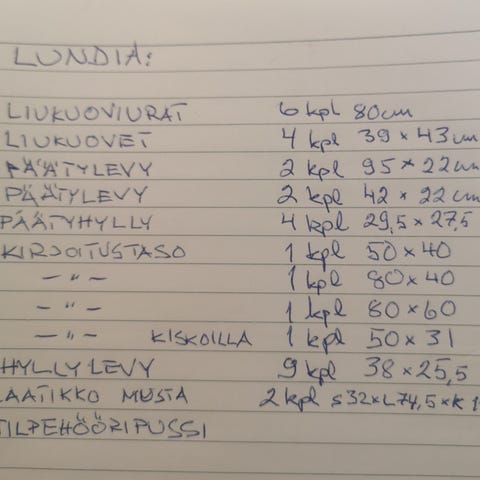 LUNDIA:
LIUKUOVIURAT 6 kpl 80cm
LIUKUOVET 4 kpl 39 x 43 cm
PÄÄTYLEVY 2 kpl 95 x 22 cm
PÄÄTYLEVY 2 kpl 42 x 22 cm
PÄÄTYHYLLY 4 kpl 29,5 x 27,5
KIRJOITUSTASO 1 kpl 50 x 40
— " — 1 kpl 80 x 40
— " — 1 kpl 80 x 60
— " — KISKOILLA 1 kpl 50 x 31
HYLLYLEVY 9 kpl 38 x 25,5
LAATIKKO MUSTA 2 kpl S32 x L74,5 x K
TILPEHÖÖRIPUSSI